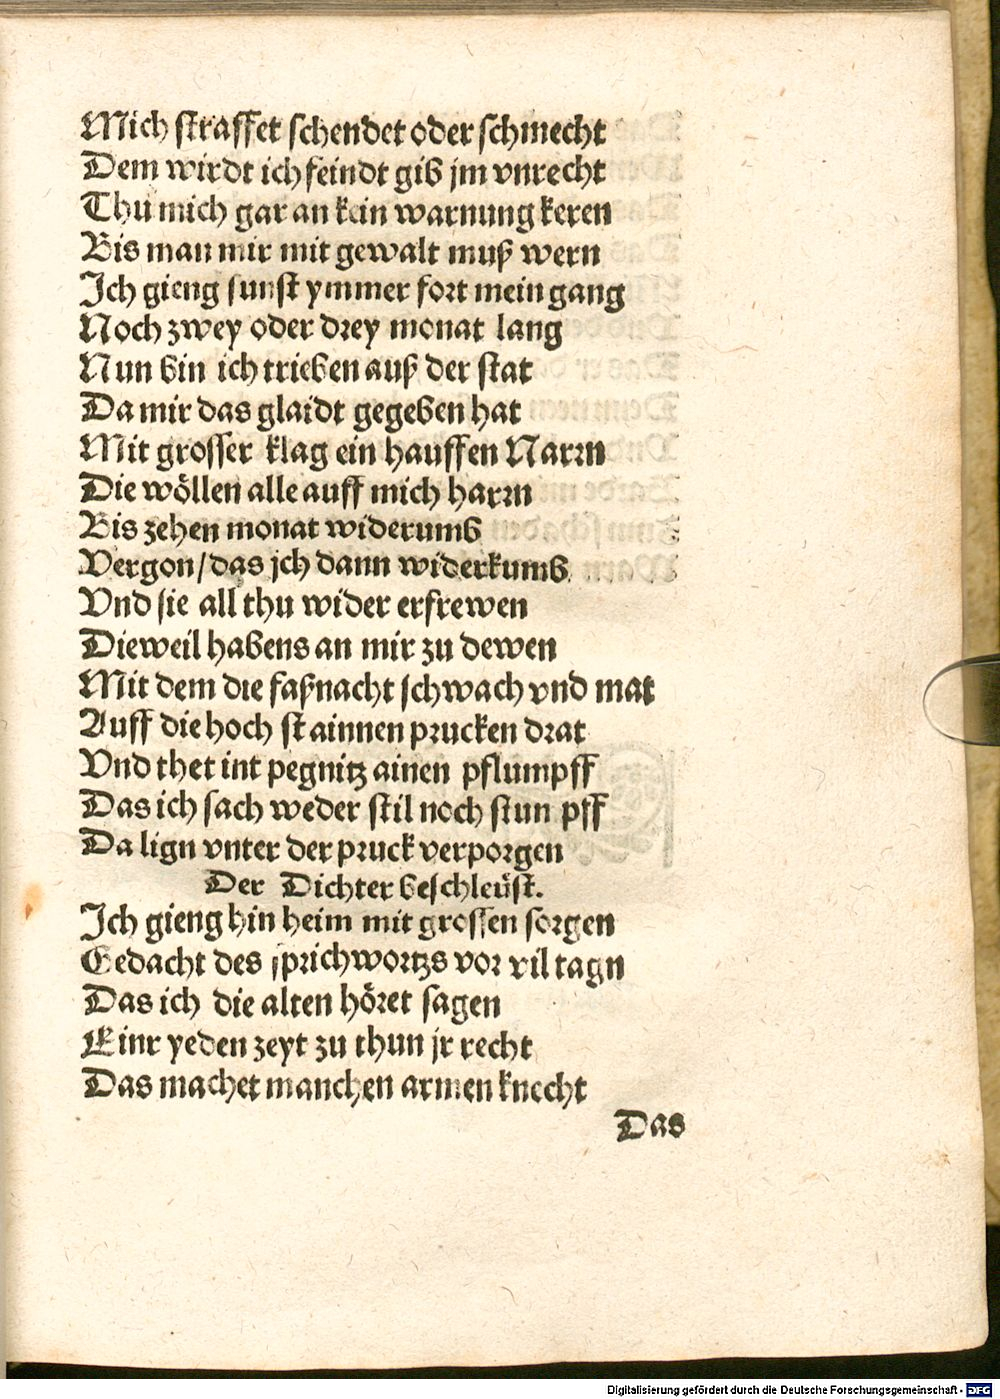 Mich straffet schendet oder schmecht
Dem wirdt ich feindt gib jm vnrecht
Thu mich gar an kein warnung keren
Bis man mir mit gewalt muß wern
Ich gieng sunst ymmer fort mein gang
Noch zwey oder drey monat lang
Nun bin ich trieben auß der stat
Da mir das glaidt gegeben hat
Mit grosser klag ein hauffen Narrn
Die wöllen alle auff mich harrn
Bis zehen monat widerumb
Vergon/das jch dann widerkumb
Vnd sie all thu wider erfrewen
Dieweil habens an mir zu dewen
Mit dem die faßnacht schwach vnd mat
Auff die hoch stainnen prucken drat
Vnd thet int pegnitz ainen pflumpff
Das ich sach weder stil noch stun pff
Da lign vnter der pruck verporgen
Der Dichter beschleüst.
Ich gieng hin heim mit grossen sorgen
Gedacht des sprichwortzs vor vil tagn
Das ich die alten höret sagen
Einr yeden zeyt zu thun jr recht
Das machet manchen armen knecht
Das
Digitalisierung gefördert durch die Deutsche Forschungsgemeinschaft - DFG